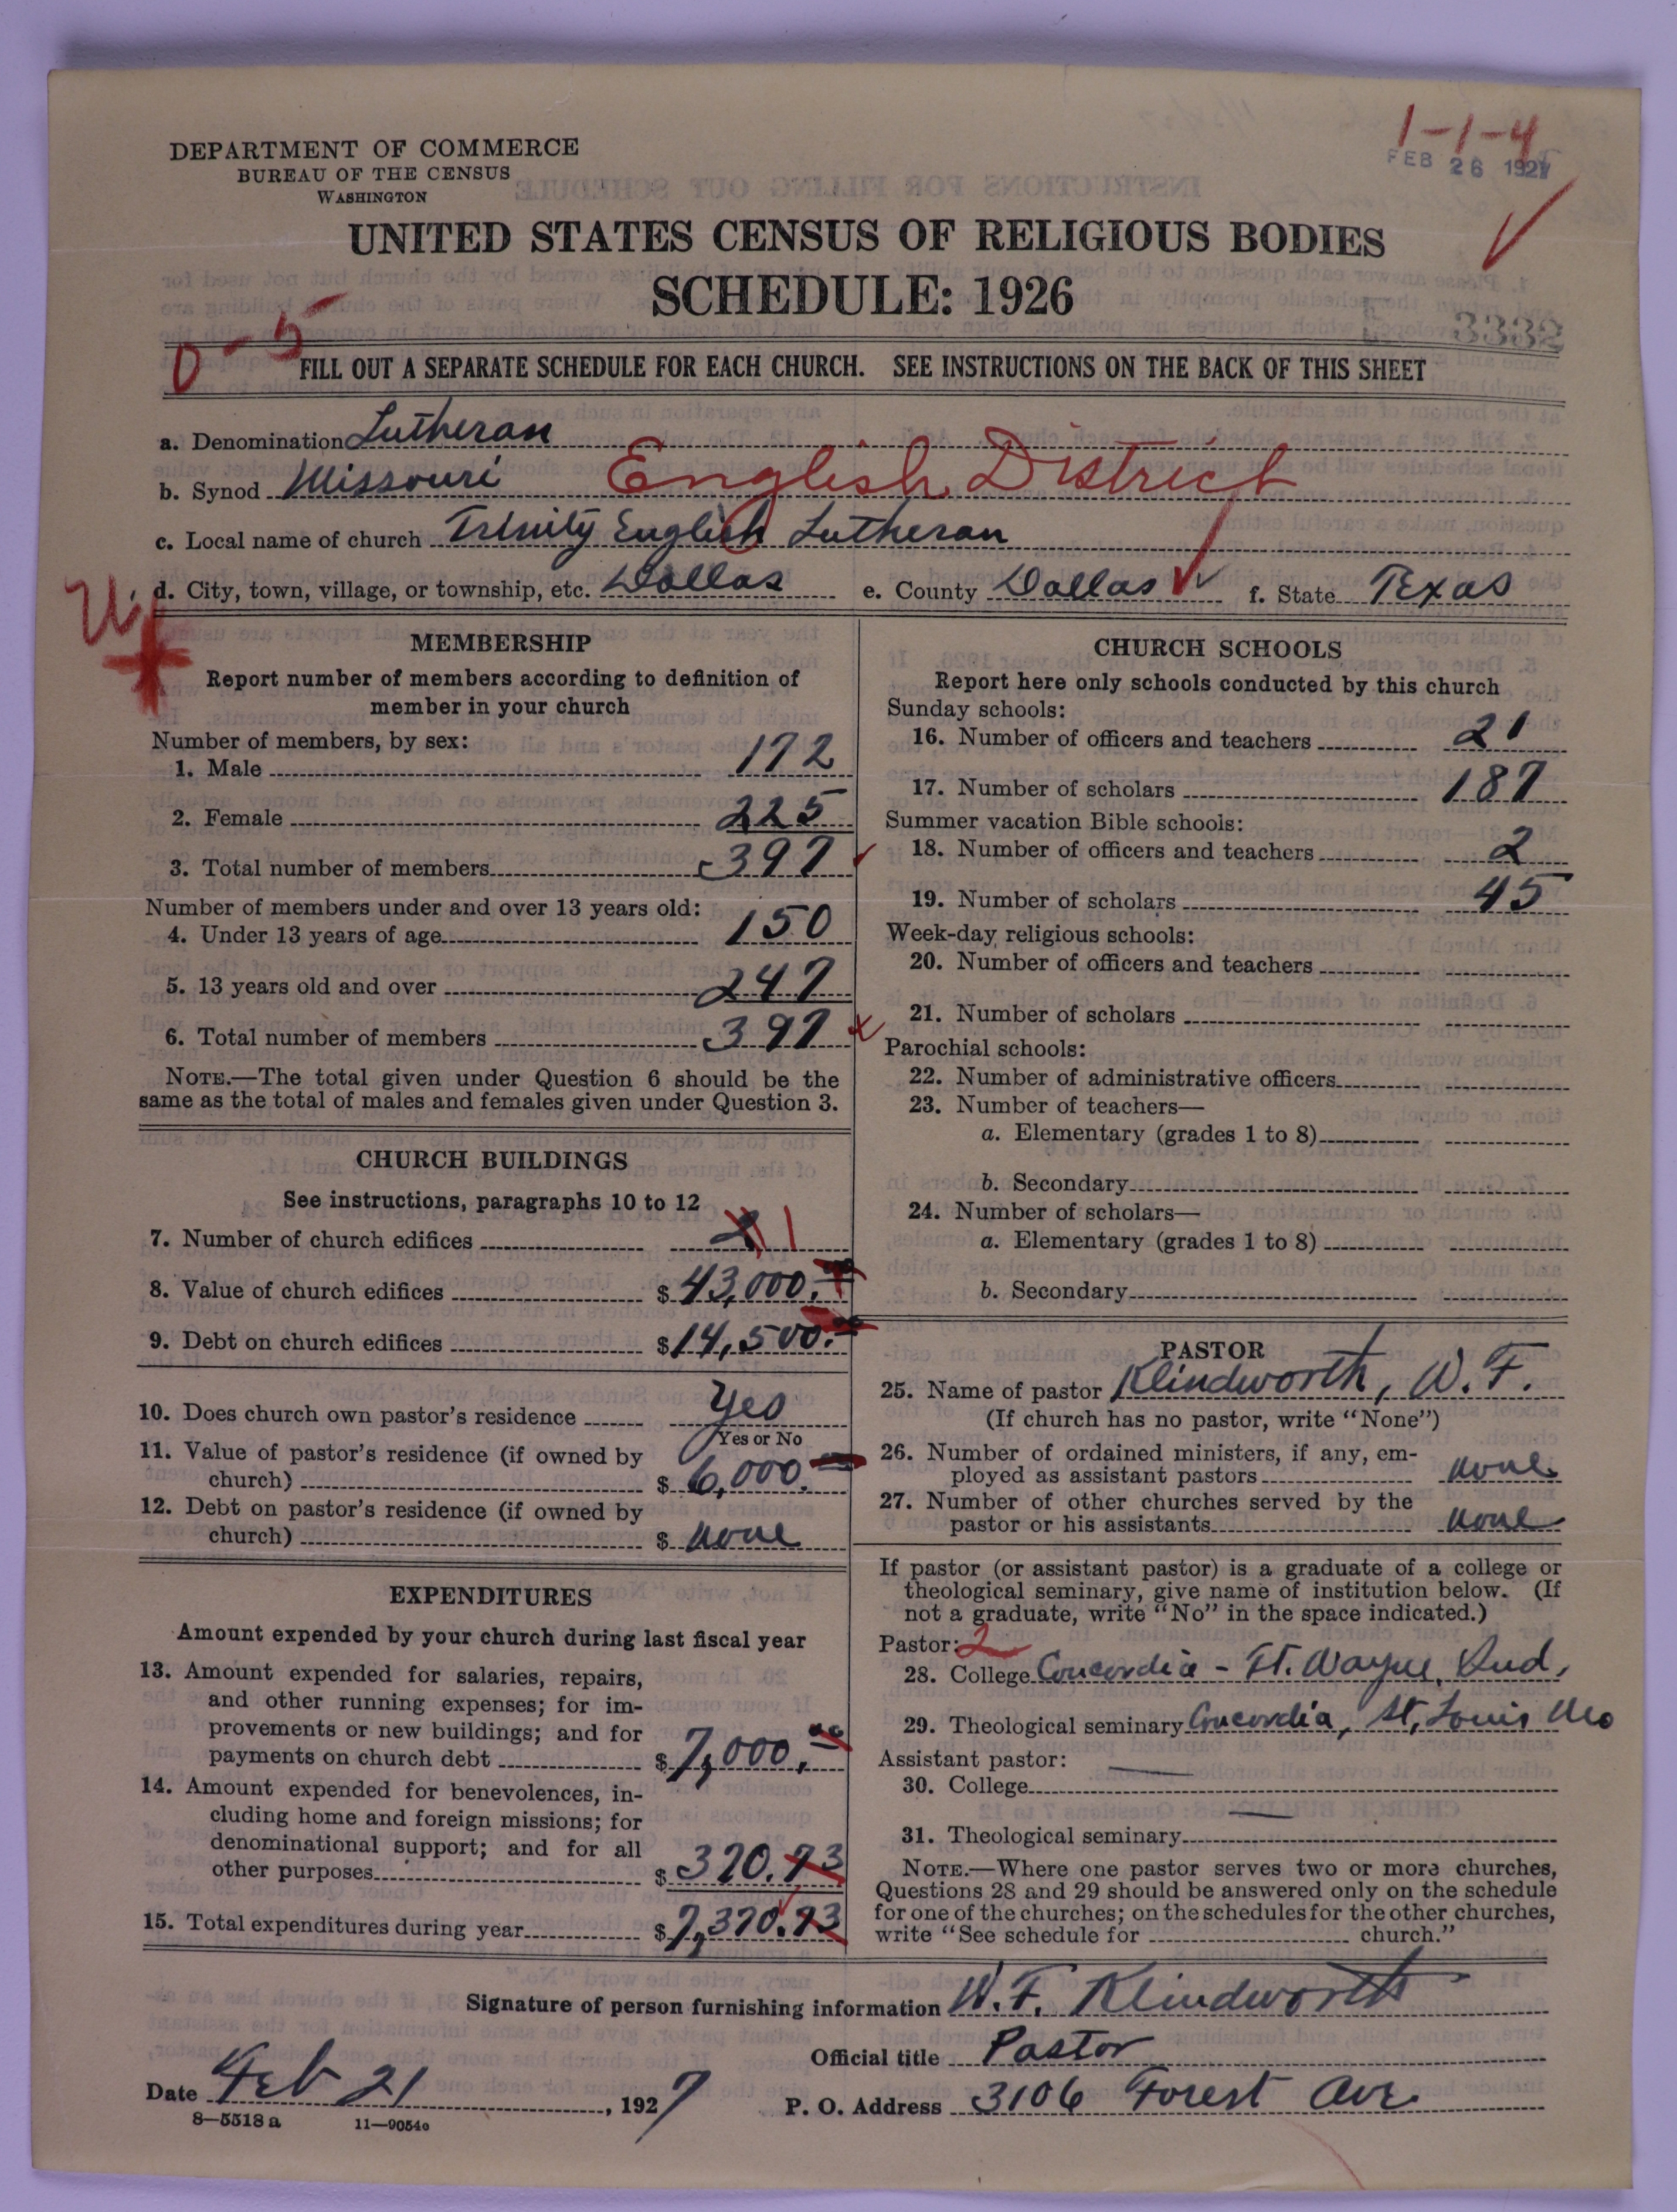 1-1-4
FEB 26 1927
DEPARTMENT OF COMMERCE
BUREAU OF THE CENSUS
WASHINGTON
UNITED STATES CENSUS OF RELIGIOUS BODIES
SCHEDULE: 1926
0-5
FILL OUT A SEPARATE SCHEDULE FOR EACH CHURCH. SEE INSTRUCTIONS ON THE BACK OF THIS SHEET
a. Denomination Lutheran
b. Synod Missouri English District
c. Local name of church Trinity English Lutheran
d. City, town, village, or township, etc. Dallas e. County Dallas f. State Texas
MEMBERSHIP
Report number of members according to definition of
member in your church
Number of members, by sex:
1. Male 172
2. Female 225
3. Total number of members 397
Number of members under and over 13 years old:
4. Under 13 years of age 150
5. 13 years old and over 247
6. Total number of members 397
NOTE.—The total given under Question 6 should be the
same as the total of males and females given under Question 3.
CHURCH BUILDINGS
See instructions, paragraphs 10 to 12
7. Number of church edifices 2 1
8. Value of church edifices $ 43,000.00
9. Debt on church edifices $ 14,500.00
10. Does church own pastor's residence Yes
Yes or No
11. Value of pastor's residence (if owned by
church) $ 6,000.
12. Debt on pastor's residence (if owned by
church) $ none
EXPENDITURES
Amount expended by your church during last fiscal year
13. Amount expended for salaries, repairs,
and other running expenses; for im-
provements or new buildings; and for
payments on church debt $ 7,000.00
14. Amount expended for benevolences, in-
cluding home and foreign missions; for
denominational support; and for all
other purposes $ 370.73
15. Total expenditures during year $ 7,370.73
CHURCH SCHOOLS
Report here only schools conducted by this church
Sunday schools:
16. Number of officers and teachers 21
17. Number of scholars 187
Summer vacation Bible schools:
18. Number of officers and teachers 2
19. Number of scholars 45
Week-day religious schools:
20. Number of officers and teachers
21. Number of scholars
Parochial schools:
22. Number of administrative officers
23. Number of teachers—
a. Elementary (grades 1 to 8)
b. Secondary
24. Number of scholars—
a. Elementary (grades 1 to 8)
b. Secondary
PASTOR
25. Name of pastor Klindworth, W. F.
(If church has no pastor, write "None")
26. Number of ordained ministers, if any, em-
ployed as assistant pastors none
27. Number of other churches served by the
pastor or his assistants none
If pastor (or assistant pastor) is a graduate of a college or
theological seminary, give name of institution below. (If
not a graduate, write "No" in the space indicated.)
Pastor: 2
28. College Concordia - Ft. Wayne, Ind.
29. Theological seminary Concordia, St. Louis Mo
Assistant pastor:
30. College
31. Theological seminary
NOTE.—Where one pastor serves two or more churches,
Questions 28 and 29 should be answered only on the schedule
for one of the churches; on the schedules for the other churches,
write "See schedule for church."
Signature of person furnishing information W. F. Klindworth
Official title Pastor
Date Feb 21, 1927 P. O. Address 3106 Forest Ave.
8—5518 a 11—9054a